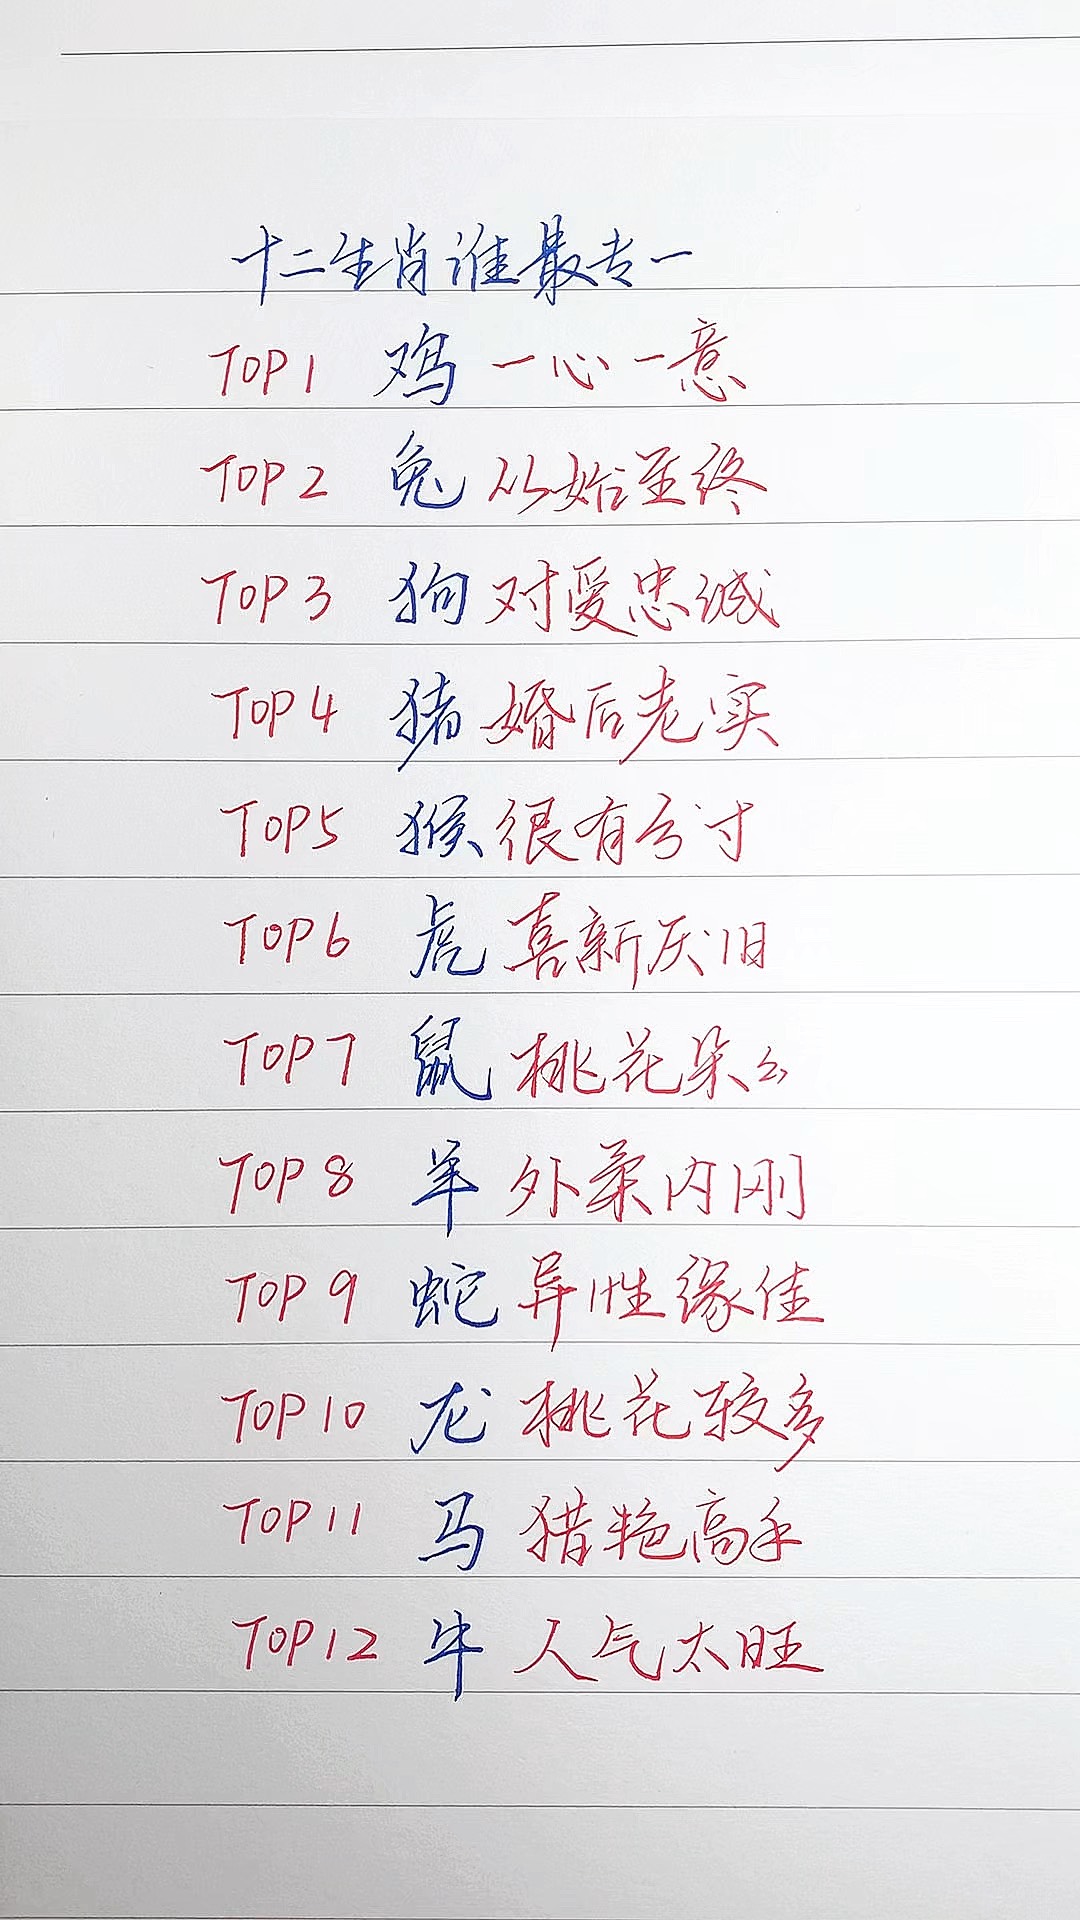 十二生肖谁最专一
TOP1 鸡 一心一意
TOP2 兔 从始至终
TOP3 狗 对爱忠诚
TOP4 猪 婚后老实
TOP5 猴 很有分寸
TOP6 虎 喜新厌旧
TOP7 鼠 桃花朵々
TOP8 羊 外柔内刚
TOP9 蛇 异性缘佳
TOP10 龙 桃花较多
TOP11 马 猎艳高手
TOP12 牛 人气太旺